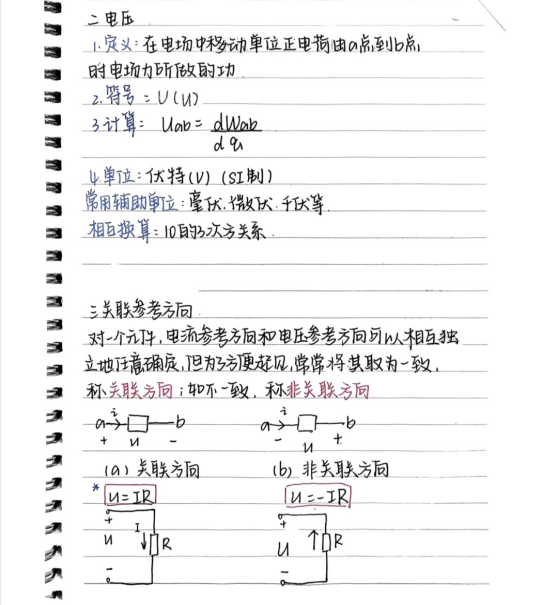 二 电压
1. 定义：在电场中移动单位正电荷由a点到b点
时电场力所做的功.
2. 符号：U(u)
3 计算：Uab = dWab / dq
4. 单位：伏特(V) (SI制)
常用辅助单位：毫伏、微伏、千伏等
相互换算：10的3次方关系.
三 关联参考方向.
对一个元件,电流参考方向和电压参考方向可以相互独
立地任意确定,但为了方便起见,常常将其取为一致,
称关联方向；如不一致,称非关联方向
a i b a i b
+ u - - u +
(a) 关联方向 (b) 非关联方向
* u=IR u=-IR
+ +
u I R u R
- -